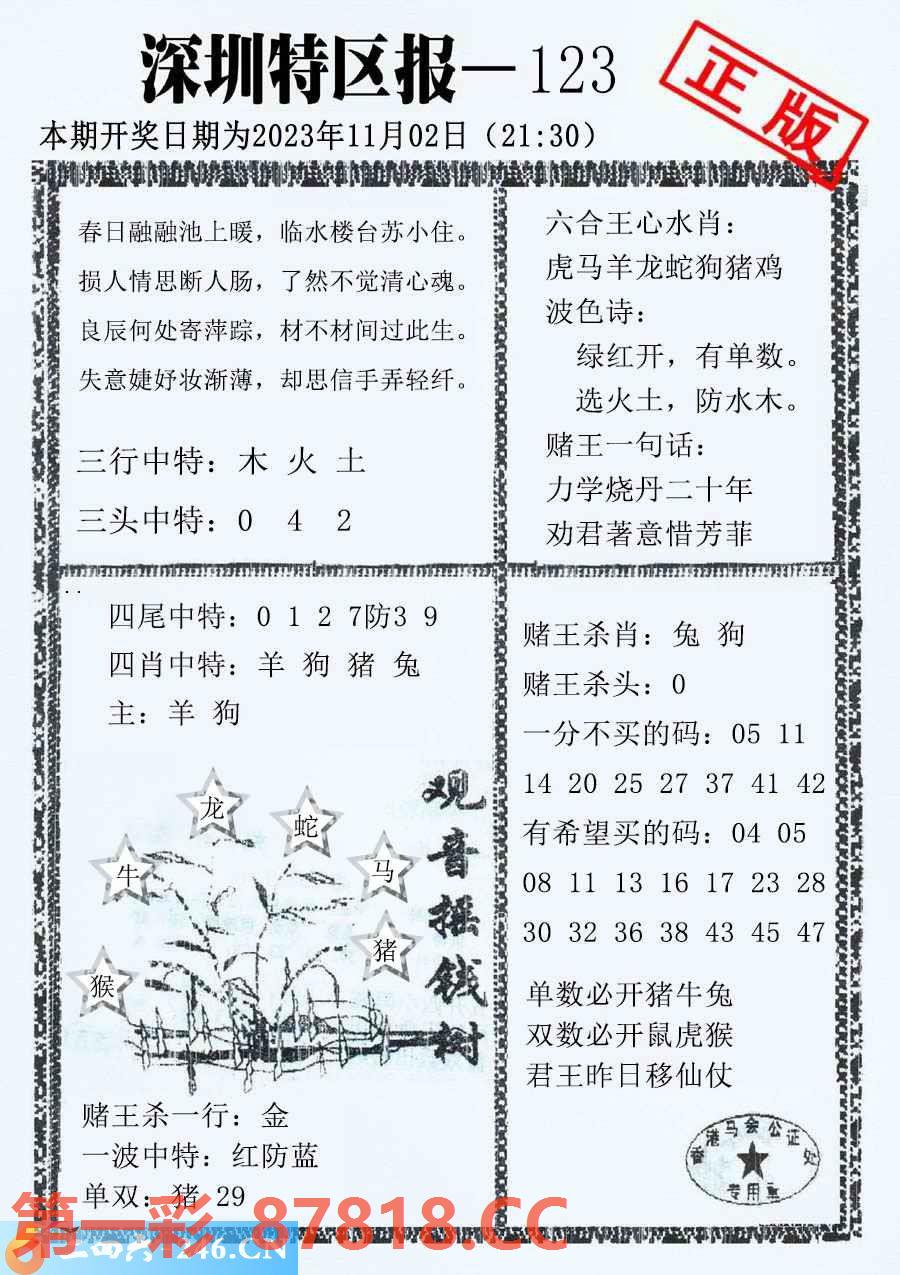 深圳特区报—123
正版
本期开奖日期为2023年11月02日（21:30）
春日融融池上暖，临水楼台苏小住。
损人情思断人肠，了然不觉清心魂。
良辰何处寄萍踪，材不材间过此生。
失意婕妤妆渐薄，却思信手弄轻纤。
三行中特：木 火 土
三头中特：0 4 2
六合王心水肖：
虎马羊龙蛇狗猪鸡
波色诗：
绿红开，有单数。
选火土，防水木。
赌王一句话：
力学烧丹二十年
劝君著意惜芳菲
四尾中特：0 1 2 7防3 9
四肖中特：羊 狗 猪 兔
主：羊 狗
龙
蛇
牛
马
猪
猴
观音摇钱树
赌王杀一行：金
一波中特：红防蓝
单双：猪 29
赌王杀肖：兔 狗
赌王杀头：0
一分不买的码：05 11
14 20 25 27 37 41 42
有希望买的码：04 05
08 11 13 16 17 23 28
30 32 36 38 43 45 47
单数必开猪牛兔
双数必开鼠虎猴
君王昨日移仙仗
香港马会公证处
专用章
第一彩 87818.CC
246.CN